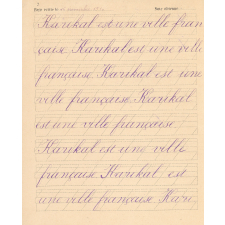 Karikal est une ville fran
çaise Karikal est une ville
française Karikal est une
ville française. Karikal
est une ville française.
Karikal est une ville
française. Karikal est
une ville française. Kari,